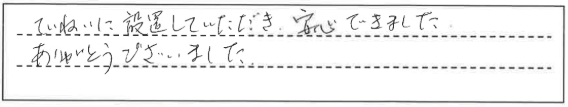 ていねいに設置していただき、安心できました。
ありがとうございました。